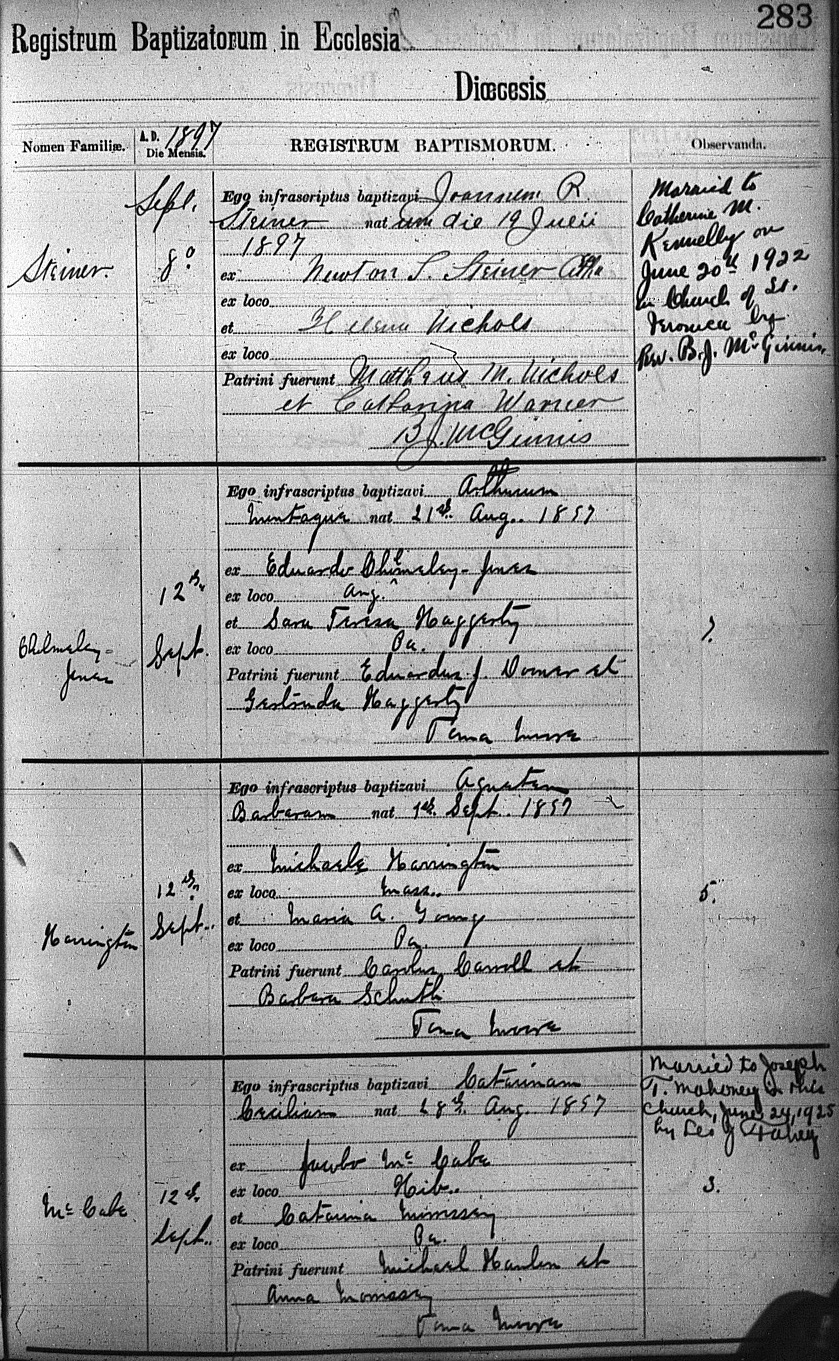 283
Registrum Baptizatorum in Ecclesia
Diœcesis
Nomen Familiæ.
A.D. 1897
Die Mensis.
REGISTRUM BAPTISMORUM.
Observanda.
Steiner.
Sept.
8º
Ego infrascriptus baptizavi Joannem R.
Steiner natum die 19 Julii
1897
ex Newton S. Steiner
ex loco
et Helena Nichols
ex loco
Patrini fuerunt Mattheus M. Nichols
et Catharina Warner
B.J. McGinnis
Married to
Catherine M.
Kennelly on
June 20th 1922
in Church of St.
Veronica by
Rev. B.J. McGinnis.
Chlmeley-
Jones
12th
Sept.
Ego infrascriptus baptizavi Arthurum
nat 21st Aug. 1897
ex Eduardo Cholmeley-Jones
ex loco Ang.
et Sara Teresa Haggerty
ex loco Pa.
Patrini fuerunt Eduardus J. et
Gertruda Haggerty
7.
Harrington
12th
Sept.
Ego infrascriptus baptizavi Agnetem
Barbaram nat 1st Sept. 1897
ex Michaele Harrington
ex loco Mass.
et Maria A. Young
ex loco Pa.
Patrini fuerunt Carolus Carroll et
Barbara
5.
McCabe
12th
Sept.
Ego infrascriptus baptizavi Catarinam
Ceciliam nat 28th Aug. 1897
ex Jacobo McCabe
ex loco Hib.
et Catarina Morrissey
ex loco Pa.
Patrini fuerunt Michael Hanlon et
Anna Morrissey
Married to Joseph
T. Mahoney in this
Church, June 24, 1925
by Leo J Fahey
3.